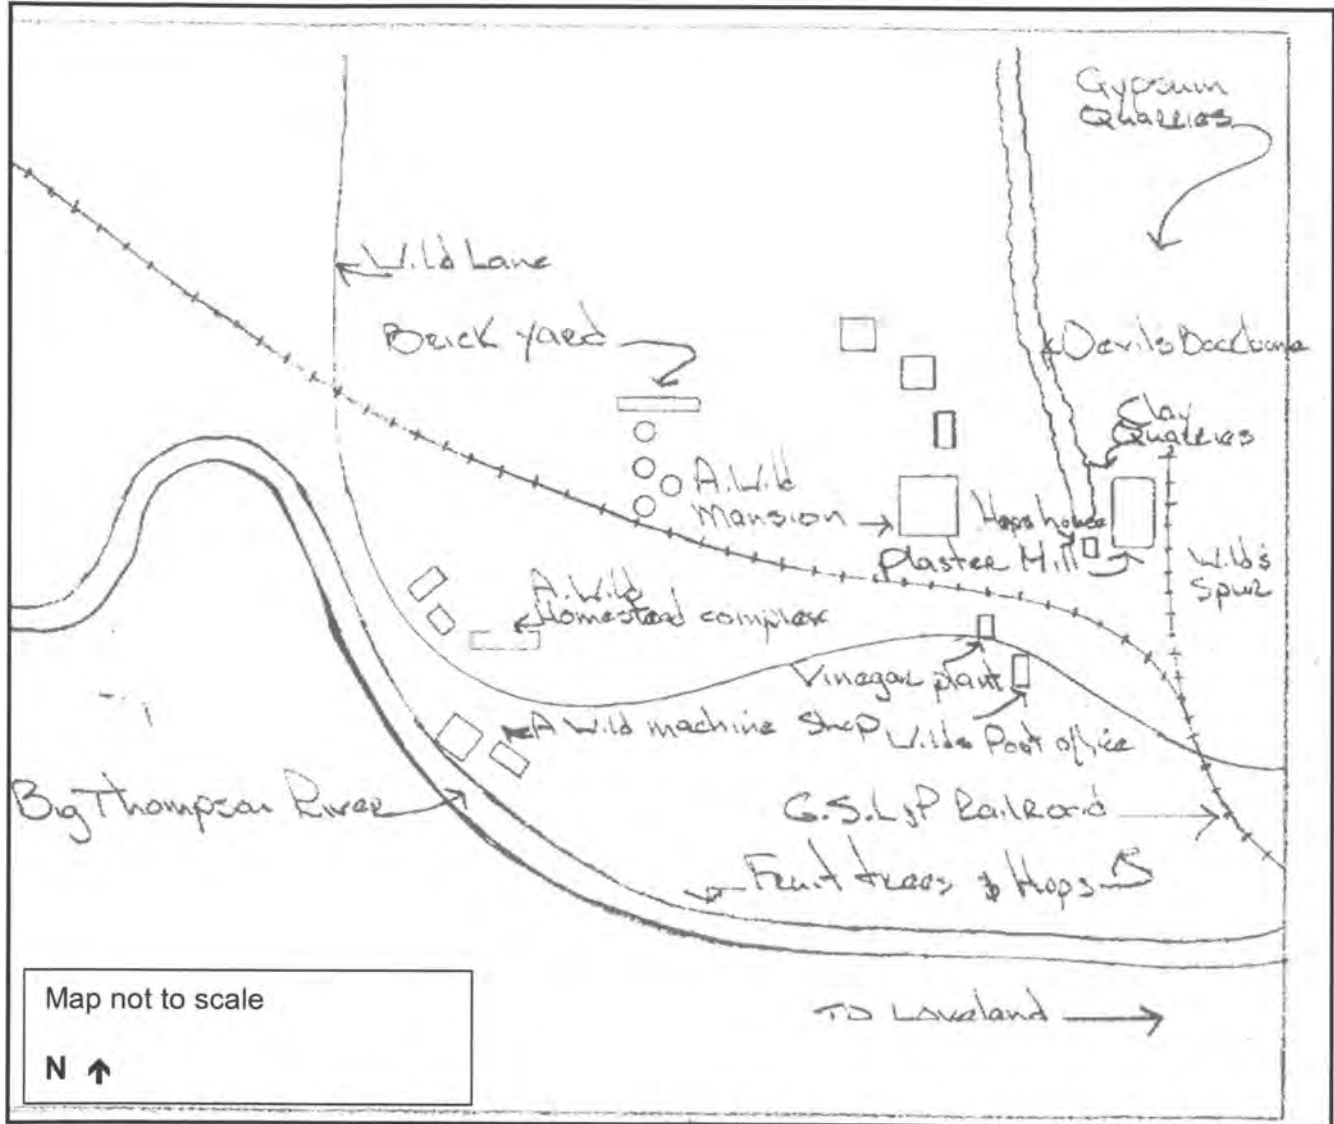 Gypsum
Quarries
Wild Lane
Brick yard
Devil's Backbone
Clay
Quarries
A. Wild
Mansion
Hops house
Plaster Mill
Wild's
Spur
A. Wild
Homestead complex
Vinegar plant
A Wild machine Shop
Wilds Post office
Big Thompson River
G.S.L&P Railroad
Fruit trees & Hops
Map not to scale
N
TO Loveland